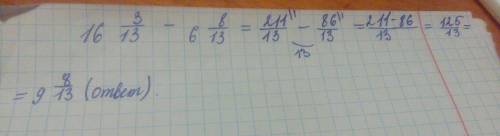 16 3/13 - 6 8/13 = 211"/13 - 86"/13 = 211-86/13 = 125/13 =
13
= 9 8/13 (ответ).